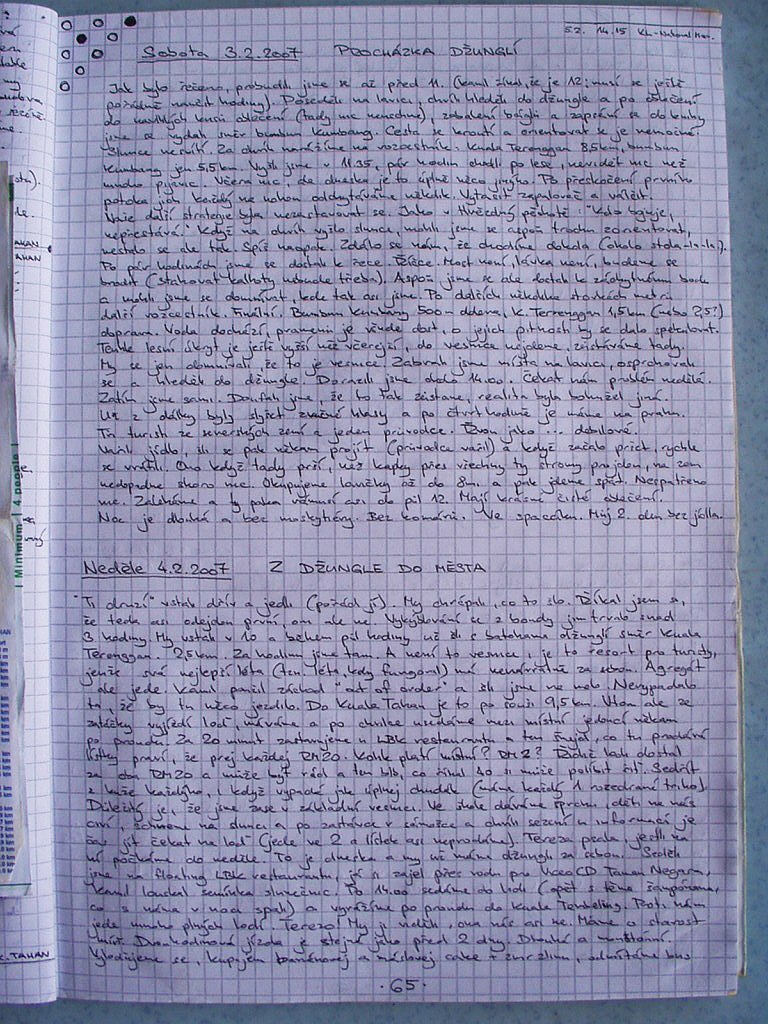 52. 14.15 KL-National Mon.
Sobota 3.2.2007 PROCHÁZKA DŽUNGLÍ
Jak bylo řečeno, probudili jsme se až před 11. (Kamil zjistil, že je 12; musí se ještě
pořádně naučit hodiny). Poseděli na lavici, chvíli hleděli do džungle a po oblečení
do navlhlých kusů oblečení (tady nic neuschne), zabalení báglů a zapsání se do knihy
jsme se vydali směr bumbun Kumbang. Cesta se kroutí a orientovat se je nemožné.
Slunce nesvítí. Za chvíli narážíme na rozcestník: Kuala Terenggan 8,5km, bumbun
Kumbang jen 5,5km. Vyšli jsme v 11.35, pár hodin chodili po lese, neviděli nic než
mnoho pijavic. Včera nic, ale dneska je to úplně něco jiného. Po přeskočení prvního
potoka jich každý na nohou odchytáváme několik. Vytasit zapalovač a válčit.
Naše další strategie byla nezastavovat se. Jako v Hvězdný pěchotě: "Kdo bojuje,
nepřestává." Když na chvíli vyšlo slunce, mohli jsme se aspoň trochu zorientovat,
nestalo se ale tak. Spíš naopak. Zdálo se nám, že chodíme dokola (okolo stola-la-la.).
Po pár hodinách jsme se dostali k řece. Most není, lávka není, budeme se
brodit (stahovat kalhoty nebude třeba). Aspoň jsme se ale dostali k záchytnému bodu
a mohli jsme se domnívat, kde tak asi jsme. Po dalších několika stovkách metrů
další rozcestník. Finální. Bumbun Kumbang 500m doleva, K. Terrenggan 1,5km (nebo 2,5?)
doprava. Voda dochází, pramenů je všude dost, o jejich pitnosti by se dalo spekulovat.
Tenhle lesní úkryt je ještě vyšší než včerejší, do vesnice nejdeme, zůstáváme tady.
My se jen domnívali, že to je vesnice. Zabrali jsme místa na lavici, osprchovali
se a hleděli do džungle. Dorazili jsme okolo 14.00. Čekat nám problém nedělá.
Zatím jsme sami. Doufali jsme, že to tak zůstane, realita byla bohužel jiná.
Už z dálky byly slyšet hlasy a po čtvrthodině je máme na prahu.
Tři turisti ze severských zemí a jeden průvodce. Řvou jako ... debilové.
Uvařili jídlo, šli se pak někam projít (průvodce vařil) a když začalo pršet, rychle
se vrátili. Ono když tady prší, než kapky přes všechny ty stromy projdou, na zem
nedopadne skoro nic. Okupujeme lavičky až do 8mi a pak jdeme spát. Nespatřeno
nic. Zaléháme a ty paka asi do půl 12. Mají krásné čisté oblečení.
Noc je dlouhá a bez moskytiéry. Bez komárů. Ve spacáku. Můj 2. den bez jídla.
Neděle 4.2.2007 Z DŽUNGLE DO MĚSTA
"Ti druzí" vstali dřív a jedli (pořád jí). My chrápali, co to šlo. Říkal jsem si,
že teda asi odejdou první, om ale ne. Vykopávání se z boudy jim trvalo snad
3 hodiny. My vstali v 10 a během půl hodiny už šli s batohama džunglí směr Kuala
Terenggan. 2,5km. Za hodinu jsme tam. A není to vesnice, je to resort pro turisty,
jenže svá nejlepší léta (tzn. léta, kdy fungoval) má nenávratně za sebou. Agregát
ale jede. Kamil použil záchod "out of order" a šli jsme na molo. Nevypadalo
to, že by tu něco jezdilo. Do Kuala Tahan je to po souši 9,5km. Vtom ale ze
zatáčky vyjíždí loď, máváme a po chvilce usedáme mezi místní jedoucí někam
po proudu. Za 20 minut zastavujeme u LBK restaurantu a ten týpek, co tu prodává
lístky praví, že prej každej RM20. Kolik platí místní? RM2? Řidič lodi dostal
za oba RM20 a může být rád a ten blb, co žinul 40 si může políbit řiť. Sedřít
z kůže každýho, i když vypadá jak úplnej chudák (máme každý 1 rozedraný triko).
Důležitý je, že jsme zase v základní vesnici. Ve škole dáváme sprchu, děti na nás
civí, schneme na slunci a po zastávce v sámošce a chvíli sezení u informací je
čas jít čekat na loď (jede ve 2 a lístek asi neprodáme). Tereza psala, jestli na
ní počkáme do neděle. To je dneska a my už máme džungli za sebou. Seděli
jsme na floating LBK restaurantu, já si zajel přes vodu pro VideoCD Taman Negara,
Kamil louskal semínka slunečnic. Po 14.00 sedáme do lodi (opět s těma žampónama,
co s náma v noci spali) a vyrážíme po proudu do Kuala Tembeling. Proti nám
jede mnoho plných lodí. Terezo! My ji viděli, ona nás asi ne. Máme o starost
míň. Dvouhodinová jízda je stejná jako před 2 dny. Dlouhá a monotónní.
Vyloďujeme se, kupujem banánovej a máslovej cake + zmrzlinu, odmítáme bus
·65·
4 people
Minimum